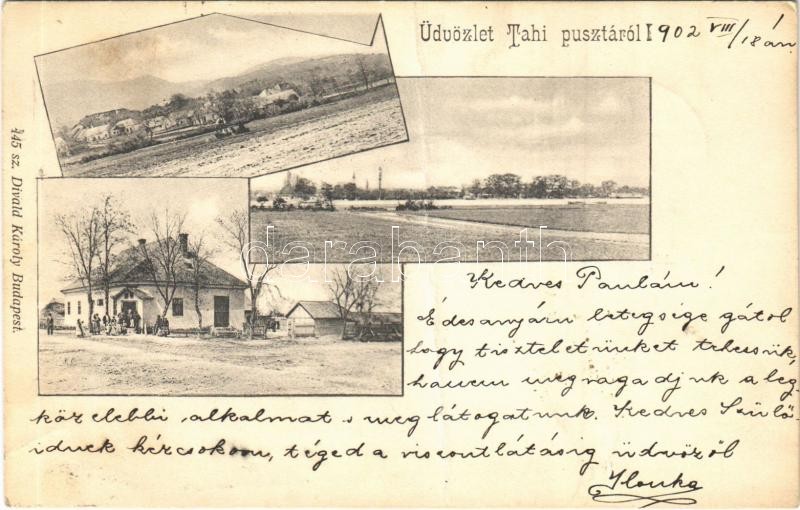 Üdvözlet Tahi pusztáról!
902 VIII/18án
445 sz. Divald Károly Budapest.
darabanth
Kedves Paulám!
Édesanyám betegsége gátol
hogy tiszteletünket tehessük,
hanem megragadjuk a leg
közelebbi alkalmat s meglátogatunk. Kedves Szülő-
idnek kézcsokom, téged a viszontlátásig üdvözöl
Ilonka